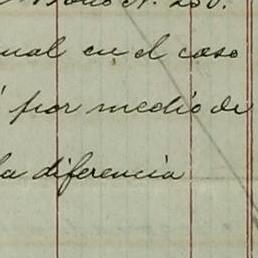 Bono N. 250.
ual en el caso
por medio de
la diferencia